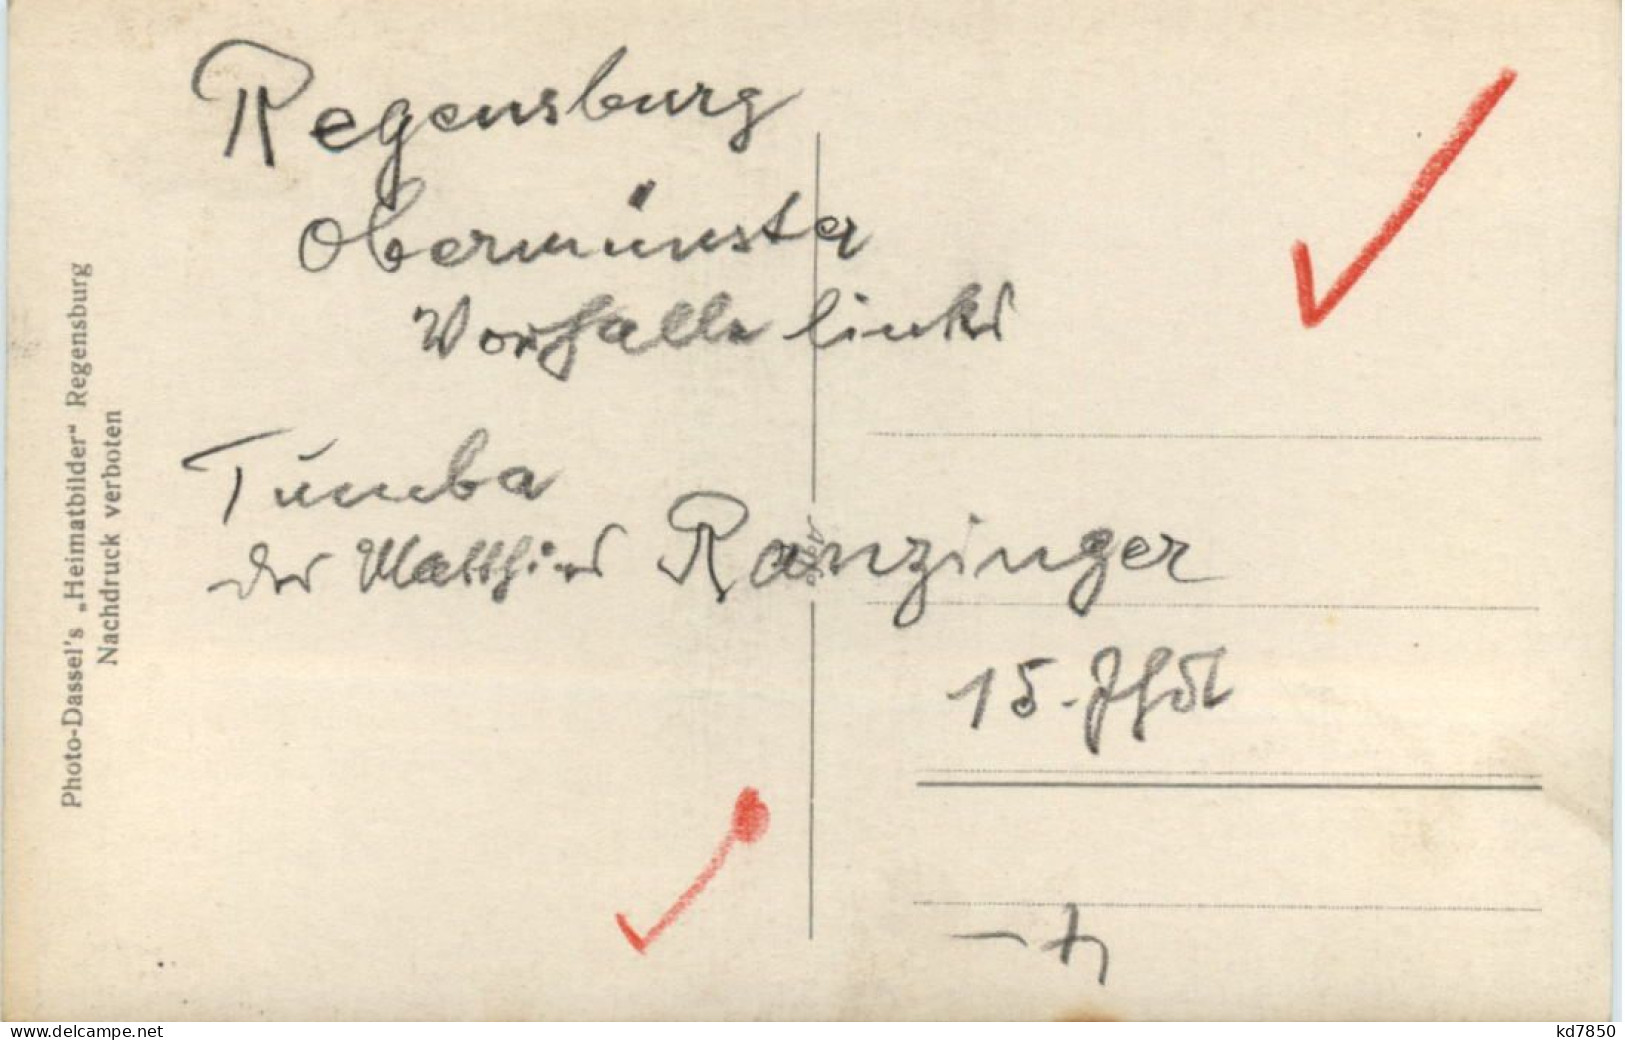 Regensburg
Obermünster
Vorhalle links
Tumba
des Matthias Ranzinger
15. Jhdt
Photo-Dassel's „Heimatbilder“ Regensburg
Nachdruck verboten
www.delcampe.net
kd7850